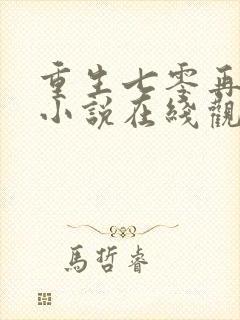 重生七零再
小說在綫觀
馬哲睿